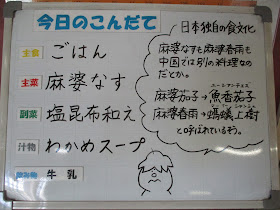 今日のこんだて
主食 ごはん
主菜 麻婆なす
副菜 塩昆布和え
汁物 わかめスープ
飲み物 牛乳
日本独自の食文化
麻婆なすも麻婆春雨も
中国では別の料理なの
だとか。
ユーシアンチィエズ
麻婆茄子→魚香茄子
麻婆春雨→螞蟻上樹
と呼ばれているそう。